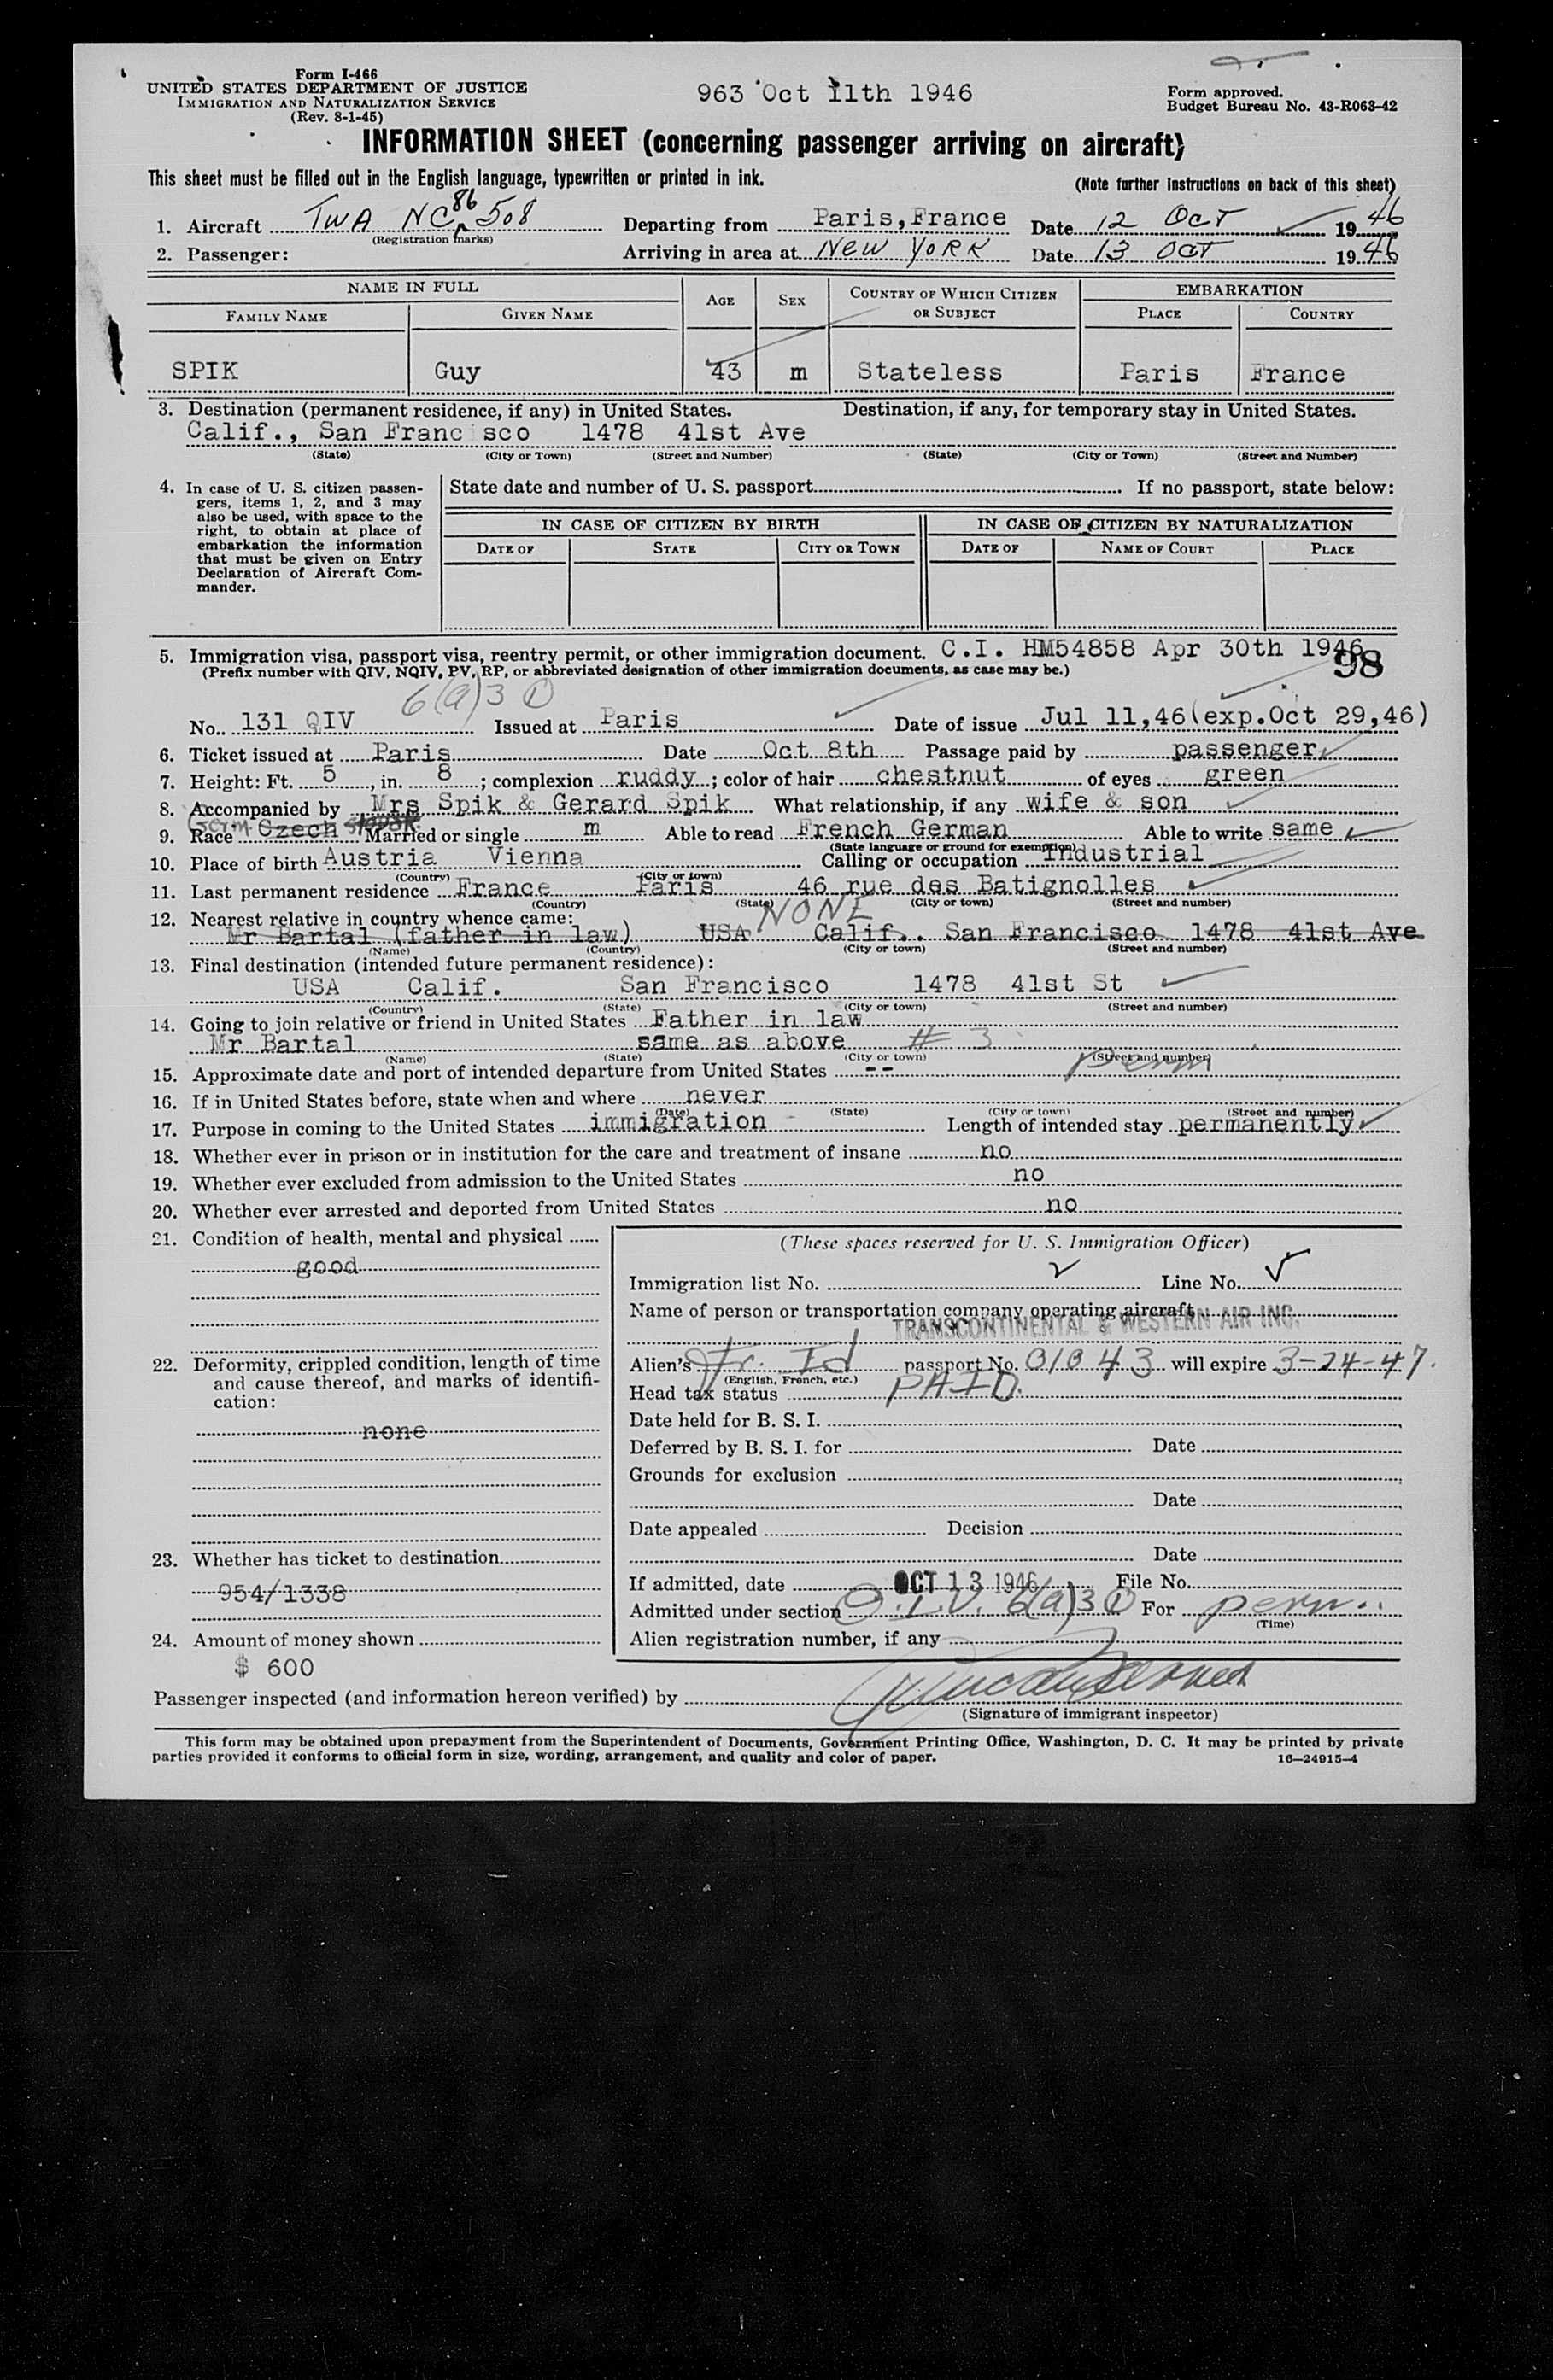 Form I-466
UNITED STATES DEPARTMENT OF JUSTICE
IMMIGRATION AND NATURALIZATION SERVICE
(Rev. 8-1-45)
963 Oct 11th 1946
Form approved.
Budget Bureau No. 43-R063-42
INFORMATION SHEET (concerning passenger arriving on aircraft)
This sheet must be filled out in the English language, typewritten or printed in ink.
(Note further instructions on back of this sheet)
1. Aircraft TWA NC 86 508 Departing from Paris, France Date 12 OCT 1946
(Registration marks)
2. Passenger: Arriving in area at New YORK Date 13 OCT 1946
NAME IN FULL AGE SEX COUNTRY OF WHICH CITIZEN OR SUBJECT EMBARKATION
FAMILY NAME GIVEN NAME PLACE COUNTRY
SPIK Guy 43 m Stateless Paris France
3. Destination (permanent residence, if any) in United States. Destination, if any, for temporary stay in United States.
Calif., San Franc sco 1478 41st Ave
(State) (City or Town) (Street and Number) (State) (City or Town) (Street and Number)
4. In case of U. S. citizen passen-
gers, items 1, 2, and 3 may
also be used, with space to the
right, to obtain at place of
embarkation the information
that must be given on Entry
Declaration of Aircraft Com-
mander.
State date and number of U. S. passport If no passport, state below:
IN CASE OF CITIZEN BY BIRTH IN CASE OF CITIZEN BY NATURALIZATION
DATE OF STATE CITY OR TOWN DATE OF NAME OF COURT PLACE
5. Immigration visa, passport visa, reentry permit, or other immigration document. C.I. HM54858 Apr 30th 1946
(Prefix number with QIV, NQIV, PV, RP, or abbreviated designation of other immigration documents, as case may be.) 98
6(a)3 1
No. 131 QIV Issued at Paris Date of issue Jul 11,46(exp.Oct 29,46)
6. Ticket issued at Paris Date Oct 8th Passage paid by passenger
7. Height: Ft. 5, in. 8; complexion ruddy; color of hair chestnut of eyes green
8. Accompanied by Mrs Spik & Gerard Spik What relationship, if any wife & son
9. Race Germ. Czech Slovak Married or single m Able to read French German Able to write same
(State language or ground for exemption)
10. Place of birth Austria Vienna Calling or occupation Industrial
(Country) (City or town)
11. Last permanent residence France Paris 46 rue des Batignolles
(Country) (State) (City or town) (Street and number)
12. Nearest relative in country whence came: NONE
Mr Bartal (father in law) USA Calif.. San Francisco 1478 41st Ave
(Name) (Country) (City or town) (Street and number)
13. Final destination (intended future permanent residence):
USA Calif. San Francisco 1478 41st St
(Country) (State) (City or town) (Street and number)
14. Going to join relative or friend in United States Father in law
Mr Bartal same as above # 3
(Name) (State) (City or town) (Street and number)
15. Approximate date and port of intended departure from United States -- Perm
16. If in United States before, state when and where never
(Date) (State) (City or town) (Street and number)
17. Purpose in coming to the United States immigration Length of intended stay permanently
18. Whether ever in prison or in institution for the care and treatment of insane no
19. Whether ever excluded from admission to the United States no
20. Whether ever arrested and deported from United States no
21. Condition of health, mental and physical
good
22. Deformity, crippled condition, length of time
and cause thereof, and marks of identifi-
cation:
none
23. Whether has ticket to destination
954/1338
24. Amount of money shown
$ 600
(These spaces reserved for U. S. Immigration Officer)
Immigration list No. Line No.
Name of person or transportation company operating aircraft
TRANSCONTINENTAL & WESTERN AIR INC.
Alien's Fr. Id passport No. 01043 will expire 3-24-47.
(English, French, etc.)
Head tax status PAID.
Date held for B. S. I.
Deferred by B. S. I. for Date
Grounds for exclusion
Date
Date appealed Decision
Date
If admitted, date OCT 13 1946 File No.
Admitted under section Q.I.V. 6(a)3 1 For perm.
(Time)
Alien registration number, if any
Passenger inspected (and information hereon verified) by
(Signature of immigrant inspector)
This form may be obtained upon prepayment from the Superintendent of Documents, Government Printing Office, Washington, D. C. It may be printed by private
parties provided it conforms to official form in size, wording, arrangement, and quality and color of paper. 16—24915-4